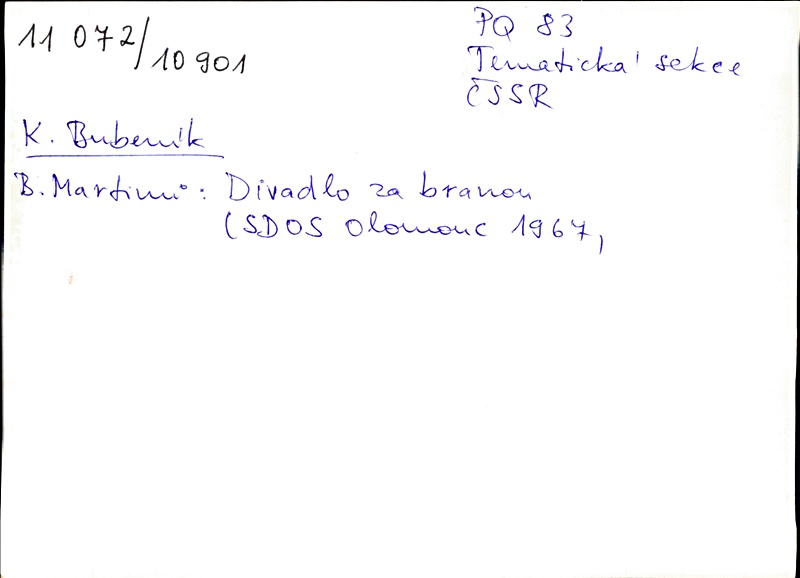 11 072/10 901
PQ 83
Tematická sekce
ČSSR
K. Bubeník
B. Martinů: Divadlo za branou
(SDOS Olomouc 1967,